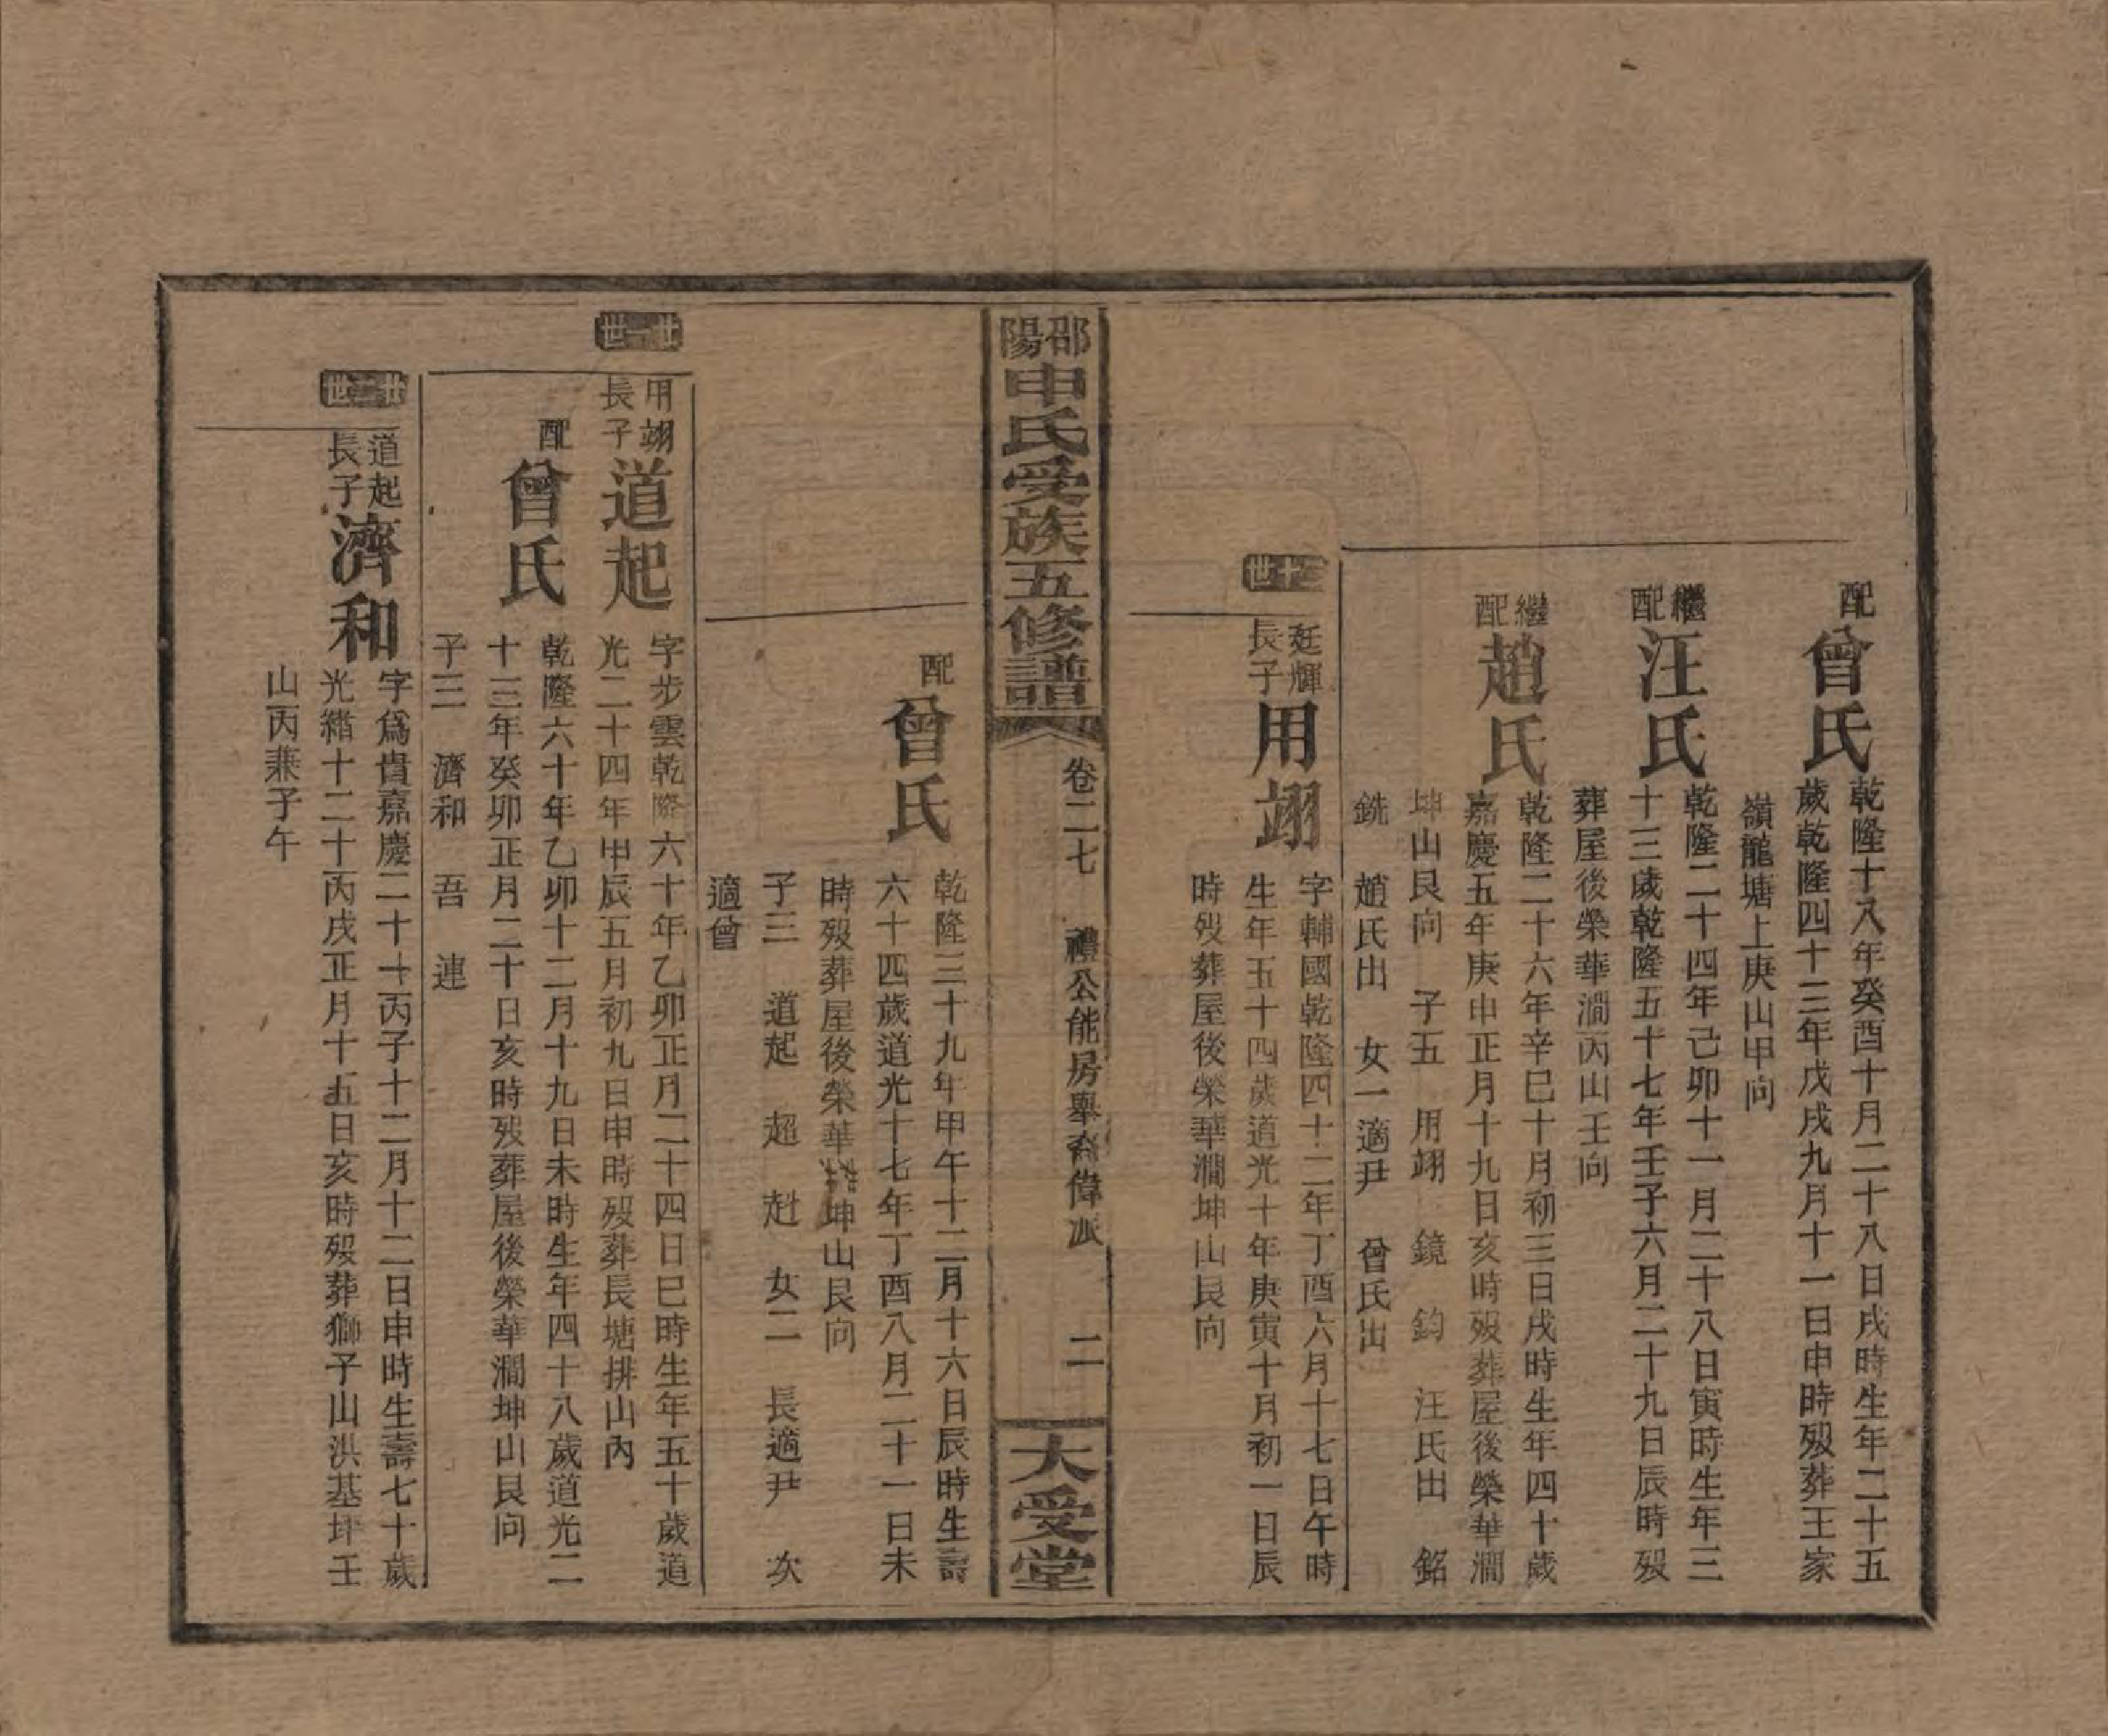 配
曾氏
乾隆十八年癸酉十月二十八日戌時生年二十五
歲乾隆四十三年戊戌九月十一日申時殁葬王家
嶺龍塘上庚山甲向
繼配
汪氏
乾隆二十四年己卯十一月二十八日寅時生年三
十三歲乾隆五十七年壬子六月二十九日辰時殁
葬屋後榮華澗丙山壬向
繼配
趙氏
乾隆二十六年辛巳十月初三日戌時生年四十歲
嘉慶五年庚申正月十九日亥時殁葬屋後榮華澗
坤山艮向 子五 用翊 鏡 鈞 汪氏出 銘
銑 趙氏出 女一適尹 曾氏出
二十世
廷輝長子
用翊
字輔國乾隆四十二年丁酉六月十七日午時
生年五十四歲道光十年庚寅十月初一日辰
時殁葬屋後榮華澗坤山艮向
邵陽申氏受族五修譜
卷二七 禮公能房舉裔偉派 二
大受堂
配
曾氏
乾隆三十九年甲午十二月十六日辰時生壽
六十四歲道光十七年丁酉八月二十一日未
時殁葬屋後榮華坤山艮向
子三 道起 超 赳 女二 長適尹 次
適曾
廿一世
用翊長子
道起
字步雲乾隆六十年乙卯正月二十四日巳時生年五十歲道
光二十四年甲辰五月初九日申時殁葬長塘排山內
配
曾氏
乾隆六十年乙卯十二月十九日未時生年四十八歲道光二
十三年癸卯正月二十日亥時殁葬屋後榮華澗坤山艮向
子三 濟和 吾 連
廿二世
道起長子
濟和
字爲貴嘉慶二十一丙子十二月十二日申時生壽七十歲
光緒十二丙戌正月十五日亥時殁葬獅子山洪基坪壬
山丙兼子午